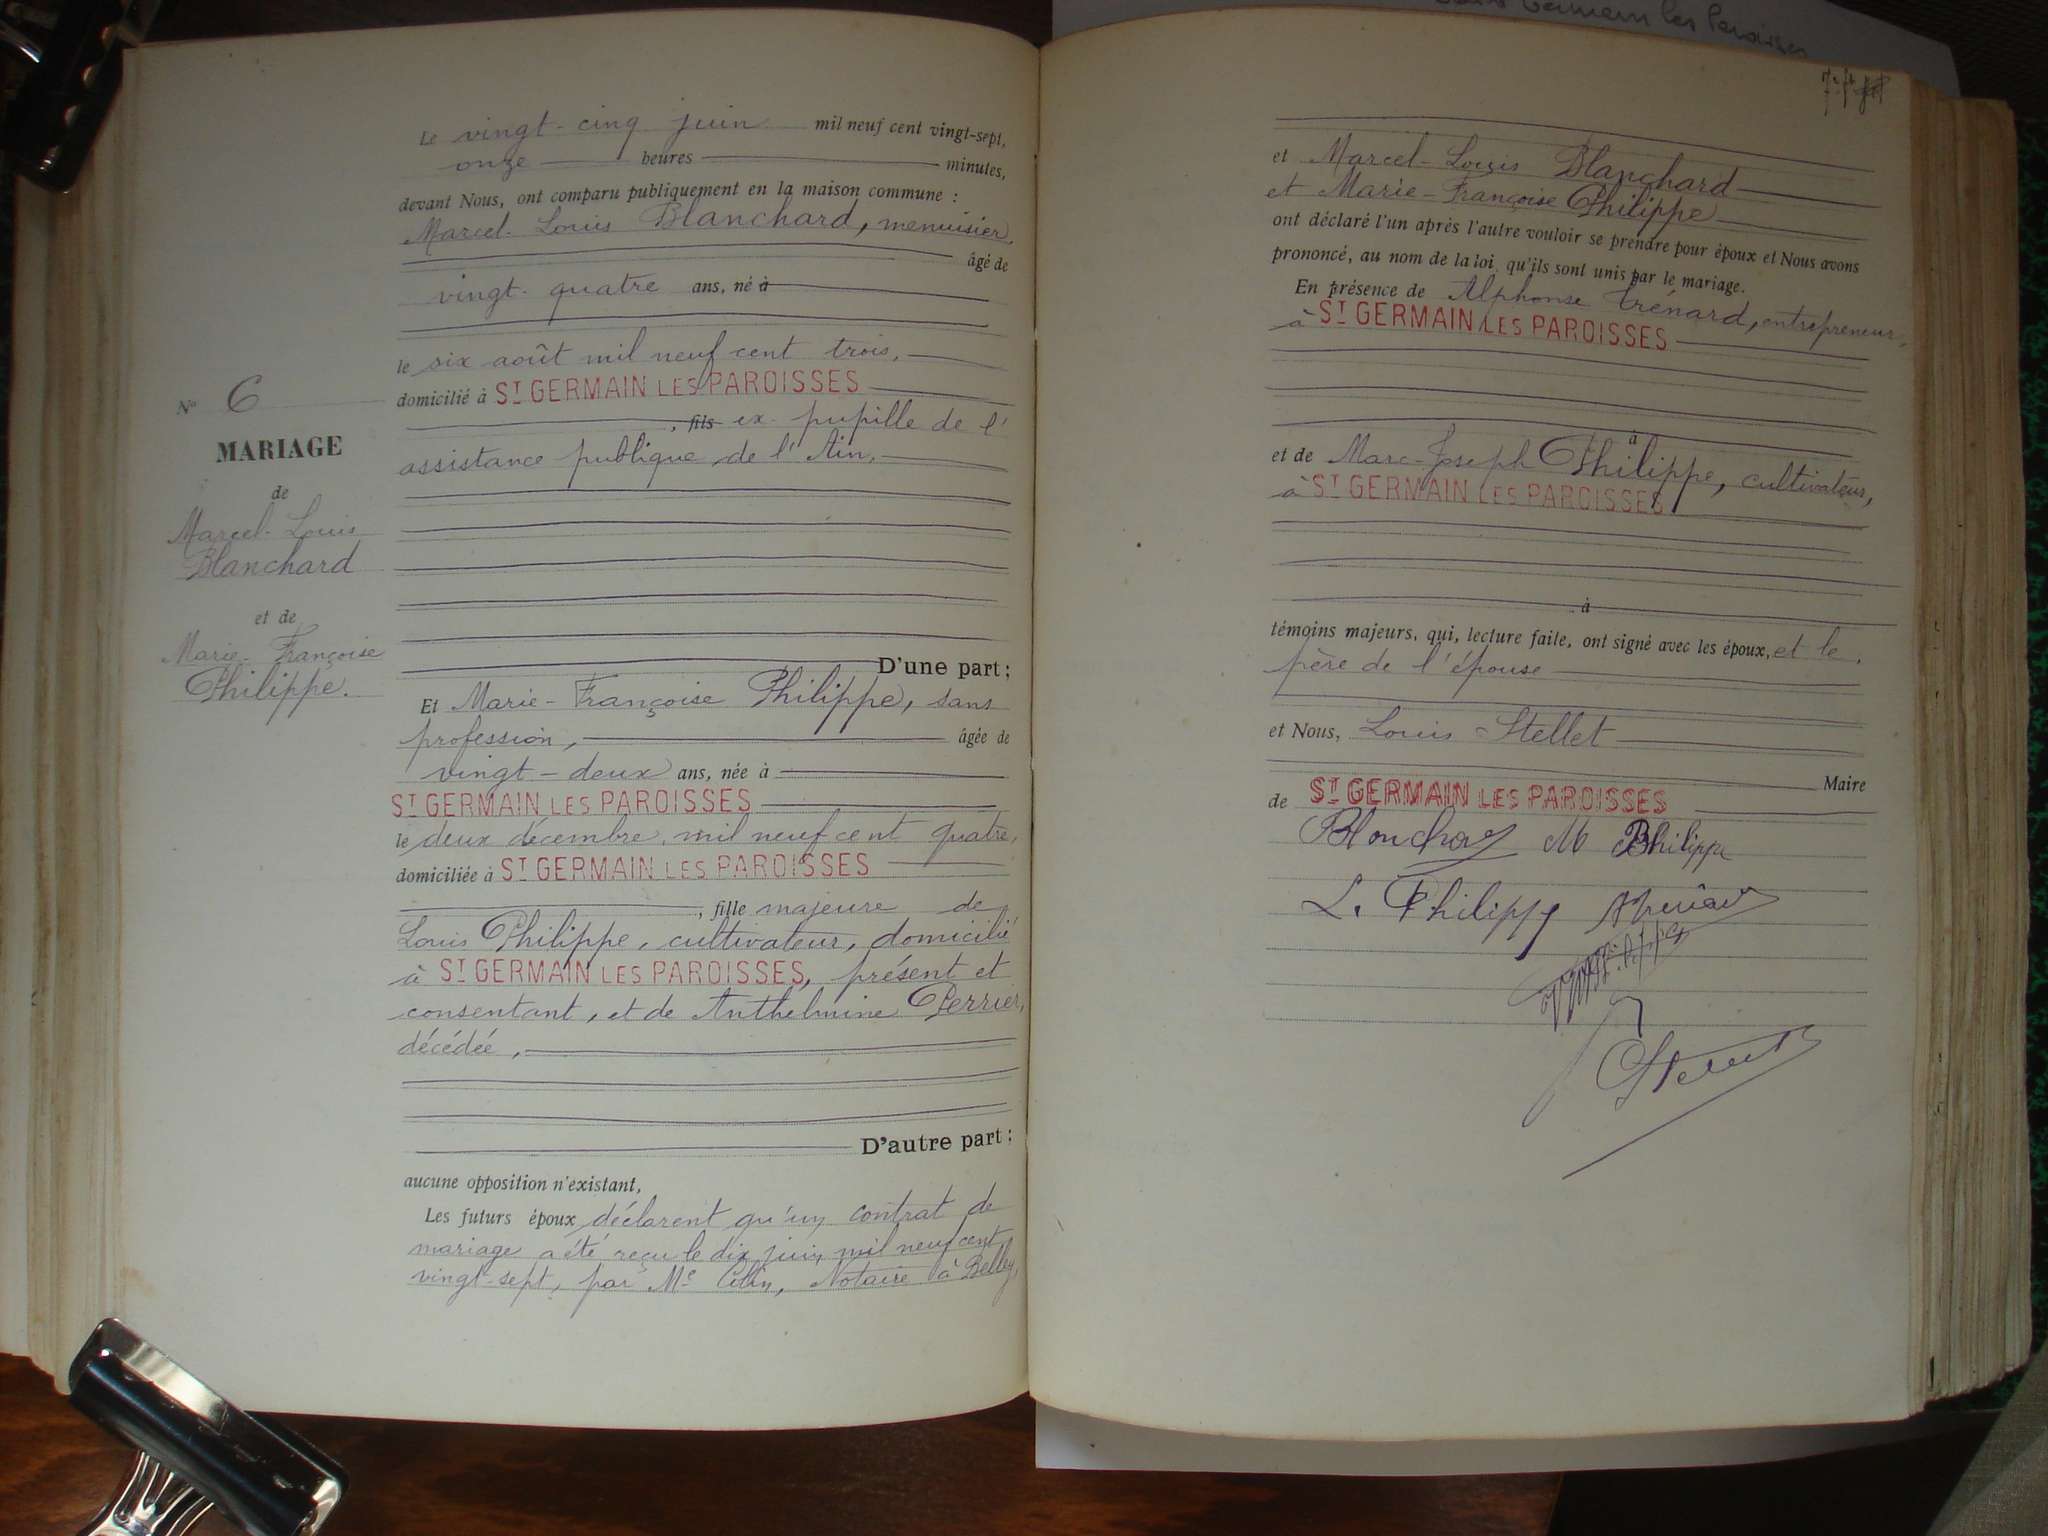 Saint Germain les Paroisses
Le vingt-cinq juin mil neuf cent vingt-sept,
onze heures minutes,
devant Nous, ont comparu publiquement en la maison commune :
Marcel-Louis Blanchard, menuisier,
âgé de
vingt-quatre ans, né à
le six août mil neuf cent trois,
domicilié à ST GERMAIN LES PAROISSES
, fils ex-pupille de l'
assistance publique de l'Ain,
No 6
MARIAGE
de
Marcel-Louis
Blanchard
et de
Marie-Françoise
Philippe.
D'une part ;
Et Marie-Françoise Philippe, sans
profession, âgée de
vingt-deux ans, née à
ST GERMAIN LES PAROISSES
le deux décembre mil neuf cent quatre,
domiciliée à ST GERMAIN LES PAROISSES
, fille majeure de
Louis Philippe, cultivateur, domicilié
à ST GERMAIN LES PAROISSES, présent et
consentant, et de Anthelmine Perrier,
décédée,
D'autre part ;
aucune opposition n'existant,
Les futurs époux déclarent qu'un contrat de
mariage a été reçu le dix juin mil neuf cent
vingt-sept, par Me Notaire à Belley,
et Marcel-Louis Blanchard
et Marie-Françoise Philippe
ont déclaré l'un après l'autre vouloir se prendre pour époux et Nous avons
prononcé, au nom de la loi, qu'ils sont unis par le mariage.
En présence de Alphonse Trénard, entrepreneur,
à ST GERMAIN LES PAROISSES
à
et de Marc-Joseph Philippe, cultivateur,
à ST GERMAIN LES PAROISSES
à
témoins majeurs, qui, lecture faite, ont signé avec les époux, et le
père de l'épouse
et Nous, Louis Stellet
Maire
de ST GERMAIN LES PAROISSES
Blanchard M Philippe
L. Philippe